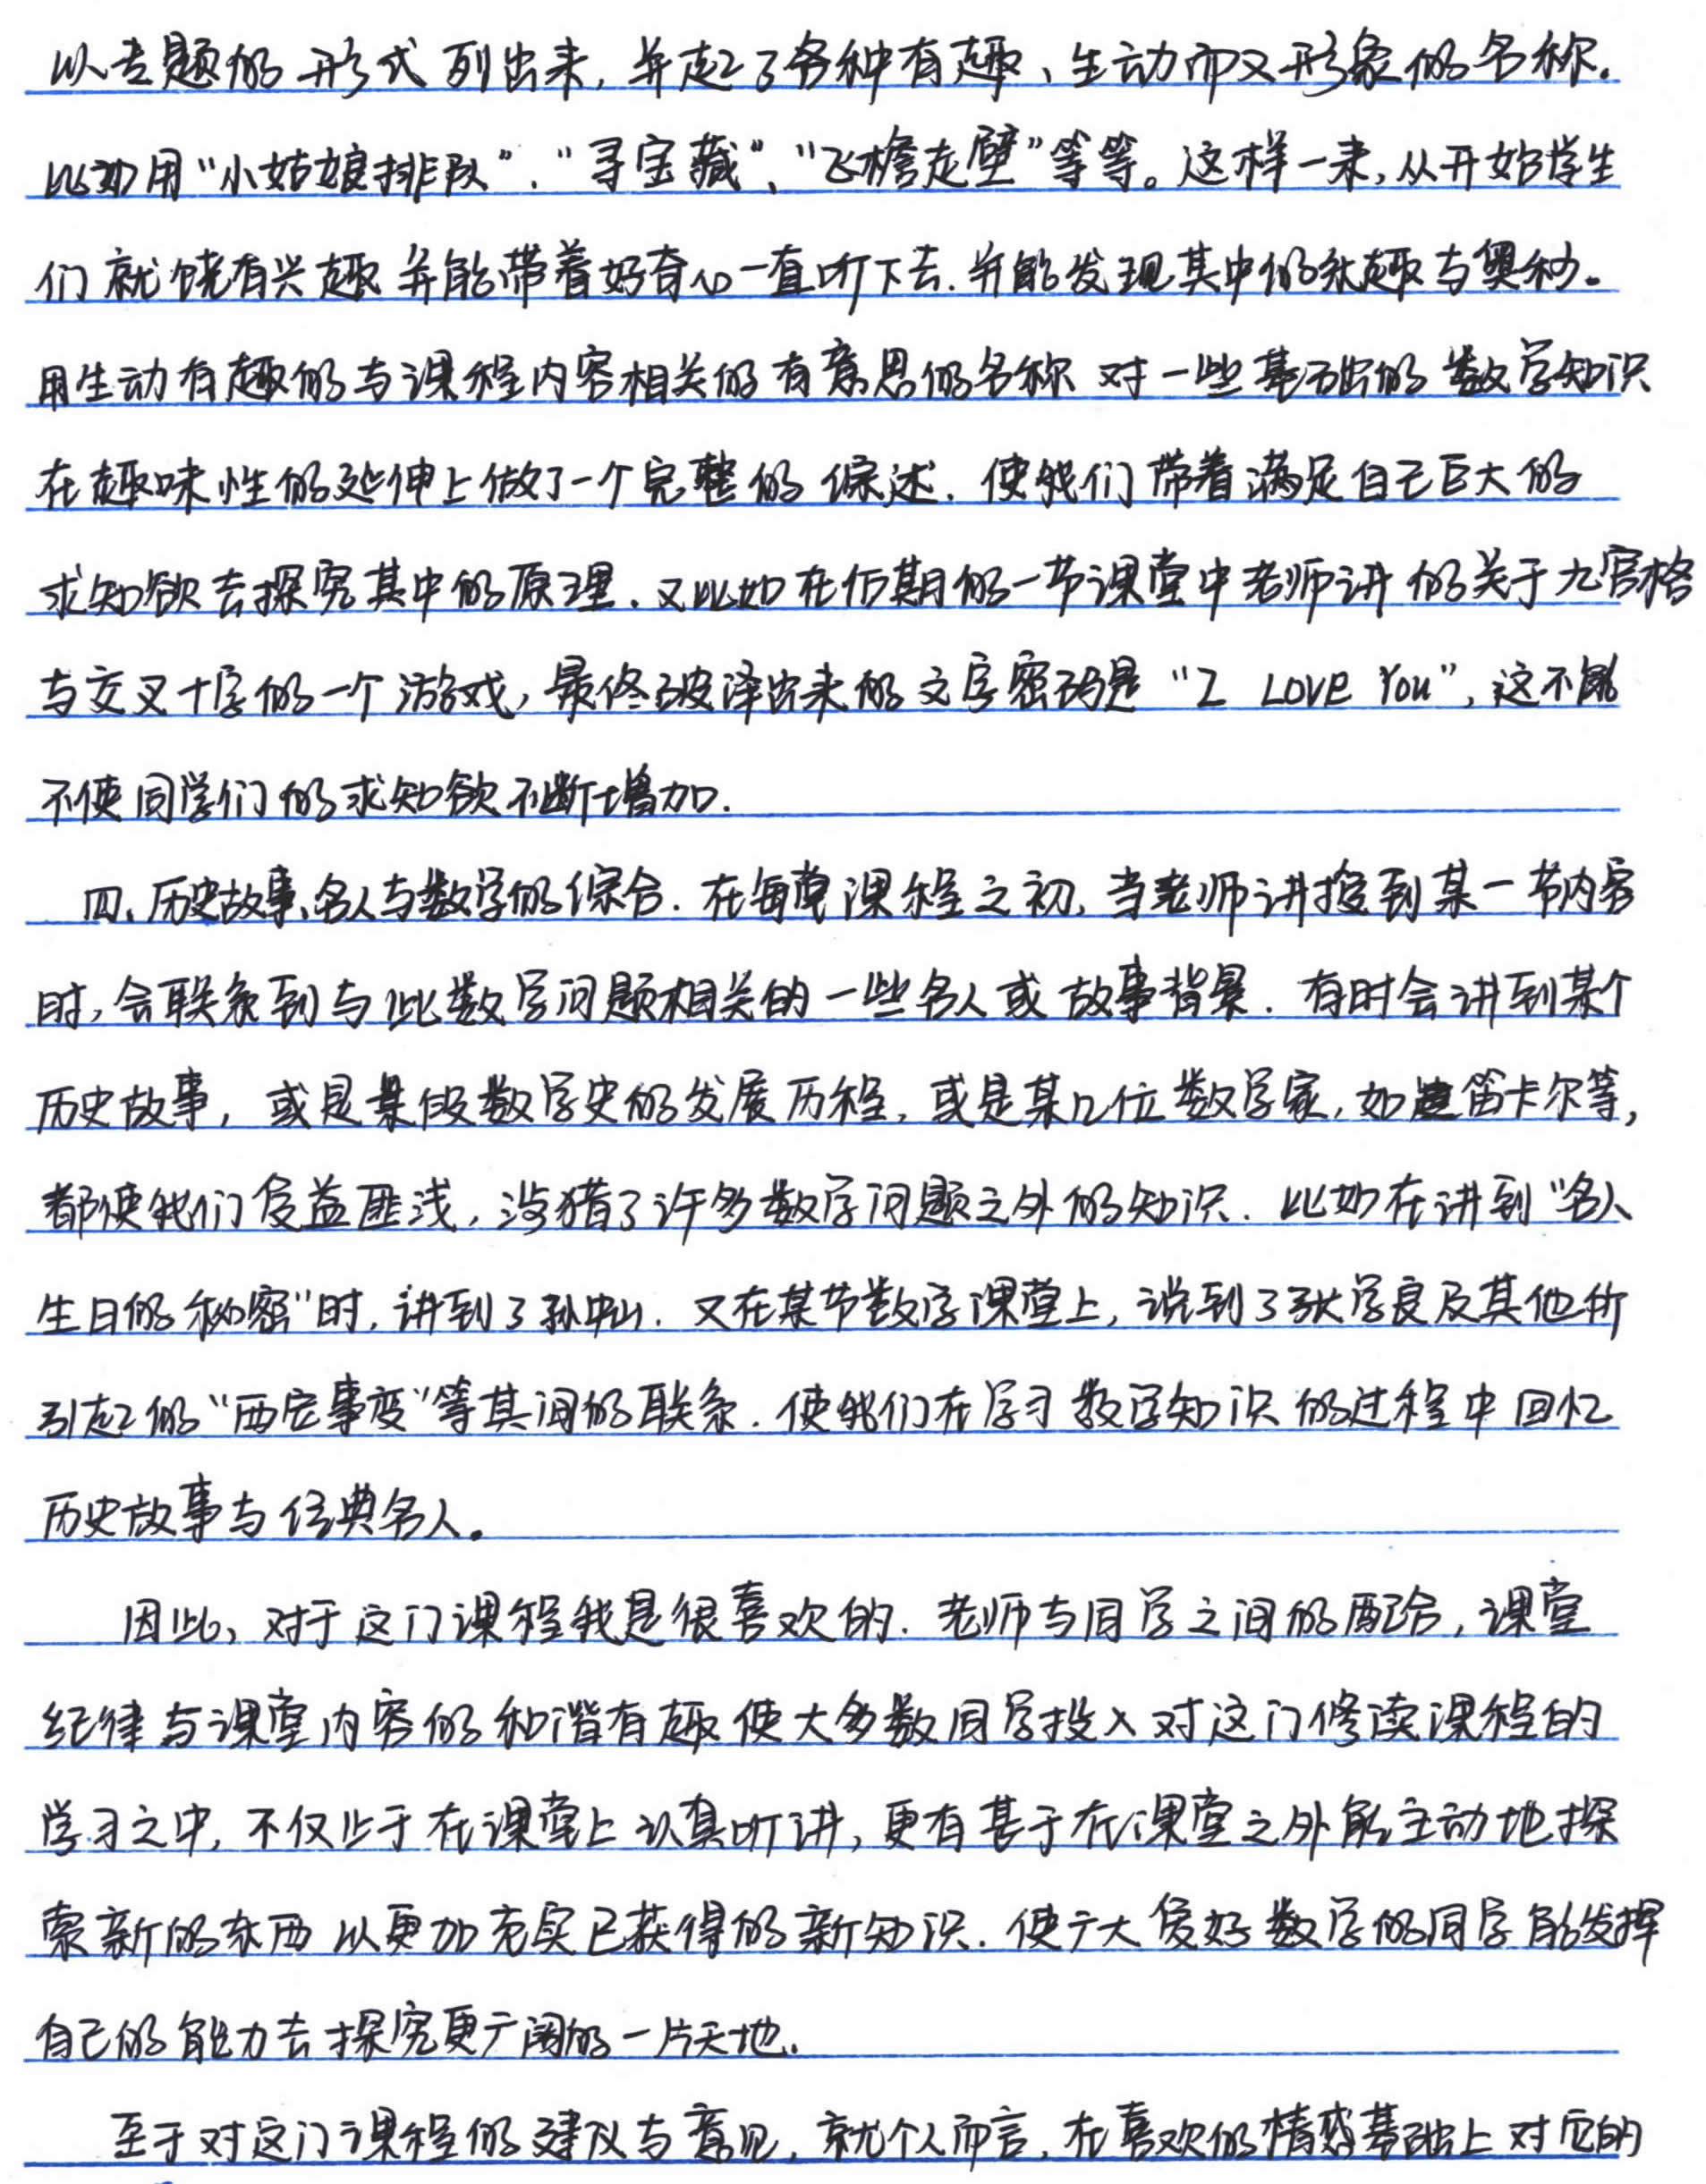 以专题的形式列出来,并起了各种有趣、生动而又形象的名称.
比如用“小姑娘排队”.“寻宝藏”、“飞檐走壁”等等。这样一来,从开始学生
们就饶有兴趣并能带着好奇心一直听下去.并能发现其中的乐趣与奥秘。
用生动有趣的与课程内容相关的有意思的名称对一些基础的数学知识
在趣味性的延伸上做了一个完整的综述.使我们带着满足自己巨大的
求知欲去探究其中的原理.又比如在后期的一节课堂中老师讲的关于九宫格
与交叉十字的一个游戏,最终破译出来的文字密码是“I LOVE You”,这不能
不使同学们的求知欲不断增加.
四、历史故事、名人与数学的综合.在每堂课程之初,当老师讲授到某一节内容
时,会联系到与此数学问题相关的一些名人或故事背景.有时会讲到某个
历史故事,或是某段数学史的发展历程,或是某几位数学家,如笛卡尔等,
都使我们受益匪浅,涉猎了许多数学问题之外的知识.比如在讲到“名人
生日的秘密”时,讲到了孙中山.又在某节数学课堂上,说到了张学良及其他所
引起的“西安事变”等其间的联系.使我们在学习数学知识的过程中回忆
历史故事与经典名人。
因此,对于这门课程我是很喜欢的.老师与同学之间的配合,课堂
纪律与课堂内容的和谐有趣使大多数同学投入对这门修读课程的
学习之中,不仅止于在课堂上认真听讲,更有甚于在课堂之外能主动地探
索新的东西以更加充实已获得的新知识.使广大爱好数学的同学能发挥
自己的能力去探究更广阔的一片天地.
至于对这门课程的建议与意见,就个人而言,在喜欢的情感基础上对它的